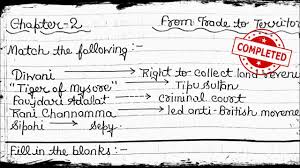 Chapter-2 From Trade to Territor
Match the following :-
COMPLETED
Diwani → Right to collect land revenue
"Tiger of Mysore" → Tipu Sultan
Faujdari Adalat → Criminal court
Rani Channamma → led anti-British movem
Sipahi → Sepy
Fill in the blanks :-